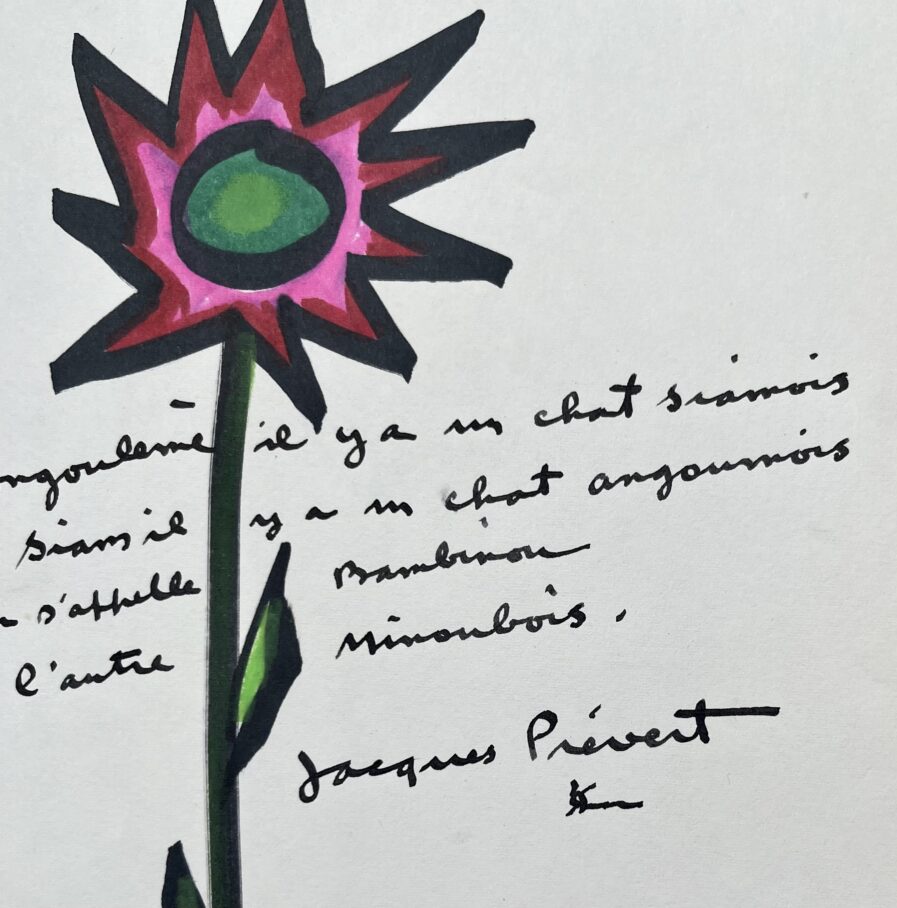 ngoulême il y a un chat siamois
siam il y a un chat angoumois
s'appelle Bambinou
l'autre Minoubois.
Jacques Prévert